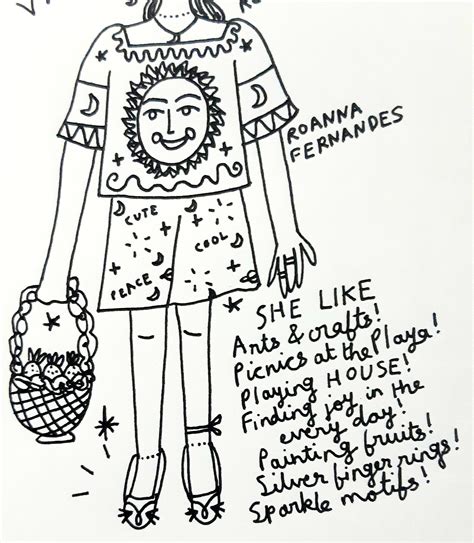 ROANNA
FERNANDES
CUTE
COOL
PEACE
SHE LIKE
Arts & crafts!
Picnics at the Playa!
Playing HOUSE!
Finding joy in the
every day!
Painting fruits!
Silver finger rings!
Sparkle motifs!